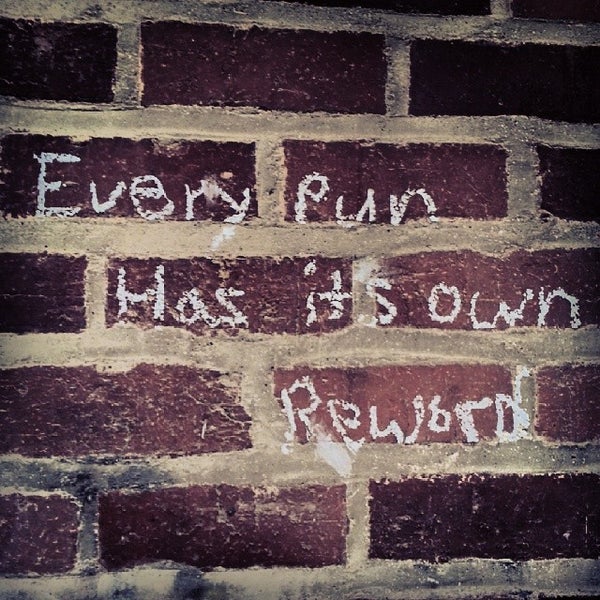 Every Pun
Has it's own
Reword